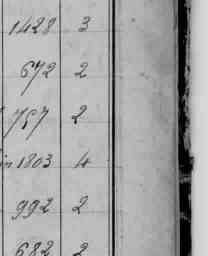 1428 3
672 2
757 2
in 1803 4
992 2
682 2